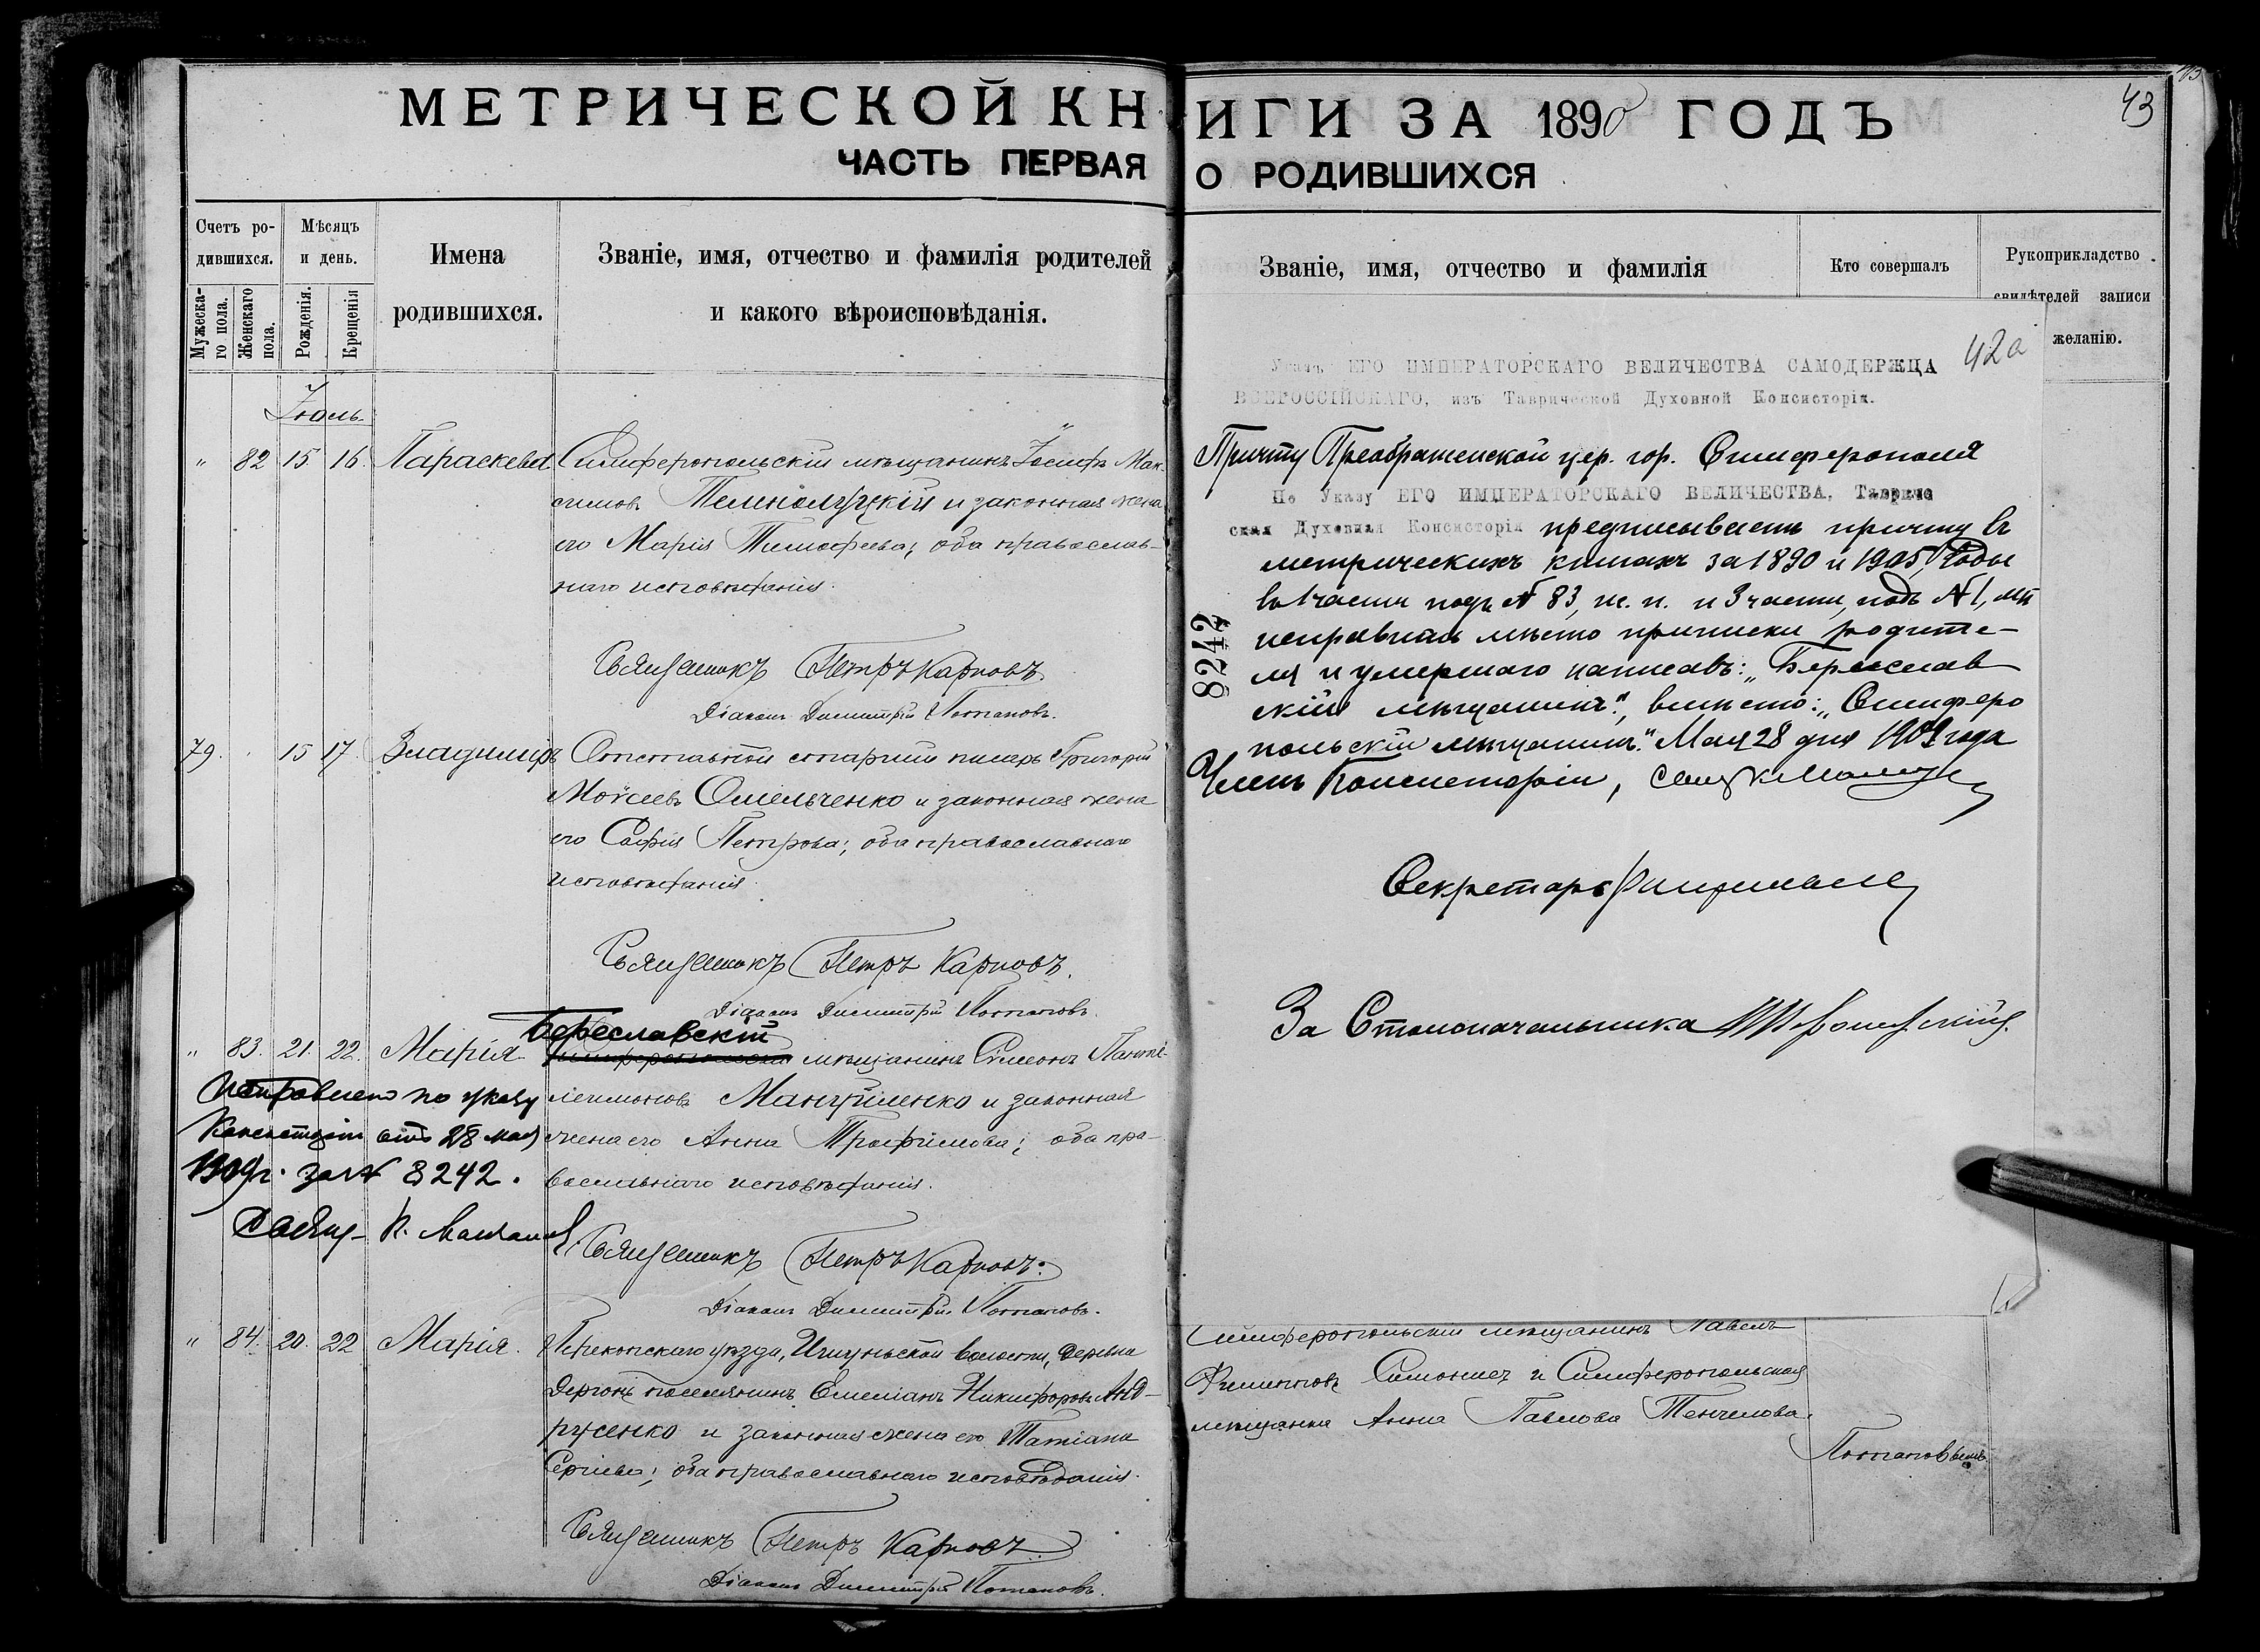 МЕТРИЧЕСКОЙ КНИГИ ЗА 1890 ГОДЪ
ЧАСТЬ ПЕРВАЯ О РОДИВШИХСЯ
43
Счетъ родившихся.
Мужеска-
го пола.
Женскаго
пола.
Мѣсяцъ
и день.
Рожденія.
Крещенія
Имена
родившихся.
Званіе, имя, отчество и фамилія родителей
и какого вѣроисповѣданія.
Іюль
" 82 15 16 Параскева Симферопольскій мѣщанинъ Іосифъ Мак-
симовъ Темнолуцкій и законная жена
его Марія Тимофеева; оба православ-
наго исповѣданія.
Священникъ Петръ Карповъ.
Діаконъ Димитрій Потаповъ.
79. 15 17 Владиміръ Отставной старшій писарь Григорій
Моѵсеевъ Омельченко и законная жена
его Софія Петрова; оба православнаго
исповѣданія.
Священникъ Петръ Карповъ.
Діаконъ Димитрій Потаповъ.
Береславскій
" 83. 21. 22. Марія Симферопольскій мѣщанинъ Симеонъ Панте-
леимоновъ Мануйленко и законная
жена его Анна Трофимова; оба пра-
вославнаго исповѣданія.
Исправлено по указу
Консисторіи отъ 28 мая
1909 г. за № 8242.
Свящ.
Священникъ Петръ Карповъ.
Діаконъ Димитрій Потаповъ.
" 84. 20. 22 Марія. Перекопскаго уѣзда, Ишуньской волости, деревни
поселянинъ Емеліанъ Никифоровъ Анд-
русенко и законная жена его Татіана
Сергіева; оба православнаго исповѣданія.
Священникъ Петръ Карповъ.
Діаконъ Димитрій Потаповъ.
Званіе, имя, отчество и фамилія
Кто совершалъ
Рукоприкладство
свидѣтелей записи
желанію.
42а
Указъ ЕГО ИМПЕРАТОРСКАГО ВЕЛИЧЕСТВА САМОДЕРЖЦА
ВСЕРОССІЙСКАГО, изъ Таврической Духовной Консисторіи.
Причту Преображенской цер. гор. Симферополя
По Указу ЕГО ИМПЕРАТОРСКАГО ВЕЛИЧЕСТВА, Тавриче
ская Духовная Консисторія предписываетъ причту въ
метрическихъ книгахъ за 1890 и 1905 годы
въ 1 части подъ № 83, ж. п. и 3 части, подъ № 1, м п
исправить мѣсто приписки родите-
ля и умершаго написавъ: „Береслав
скій мѣщанинъ", вмѣсто: „Симферо
польскій мѣщанинъ." Мая 28 дня 1909 года
8242
Членъ Консисторіи,
Секретарь
За Столоначальника
Симферопольскій мѣщанинъ Павелъ
Филипповъ и Симферопольская
мѣщанка Анна Павлова
Потаповымъ